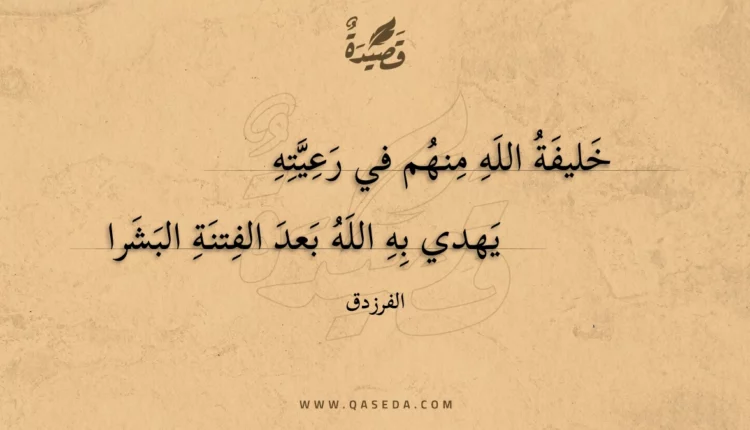 قَصِيدَةٌ
خَليفَةُ اللَهِ مِنهُم في رَعِيَّتِهِ
يَهدي بِهِ اللَهُ بَعدَ الفِتنَةِ البَشَرا
الفرزدق
WWW.QASEDA.COM